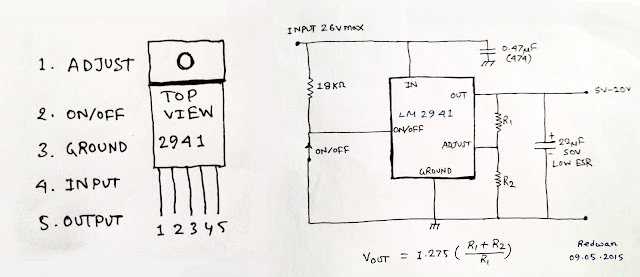 1. ADJUST
2. ON/OFF
3. GROUND
4. INPUT
5. OUTPUT
TOP
VIEW
2941
1 2 3 4 5
INPUT 26Vmax
0.47µF
(474)
18KΩ
IN
OUT
5V-20V
LM 2941
ON/OFF
R1
ADJUST
+
22µF
50V
LOW ESR
-
ON/OFF
GROUND
R2
VOUT = 1.275 ( R1 + R2 / R1 )
Redwan
09.05.2015